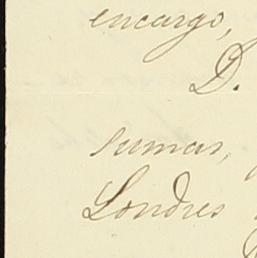 encargo,
D.
sumas,
Londres